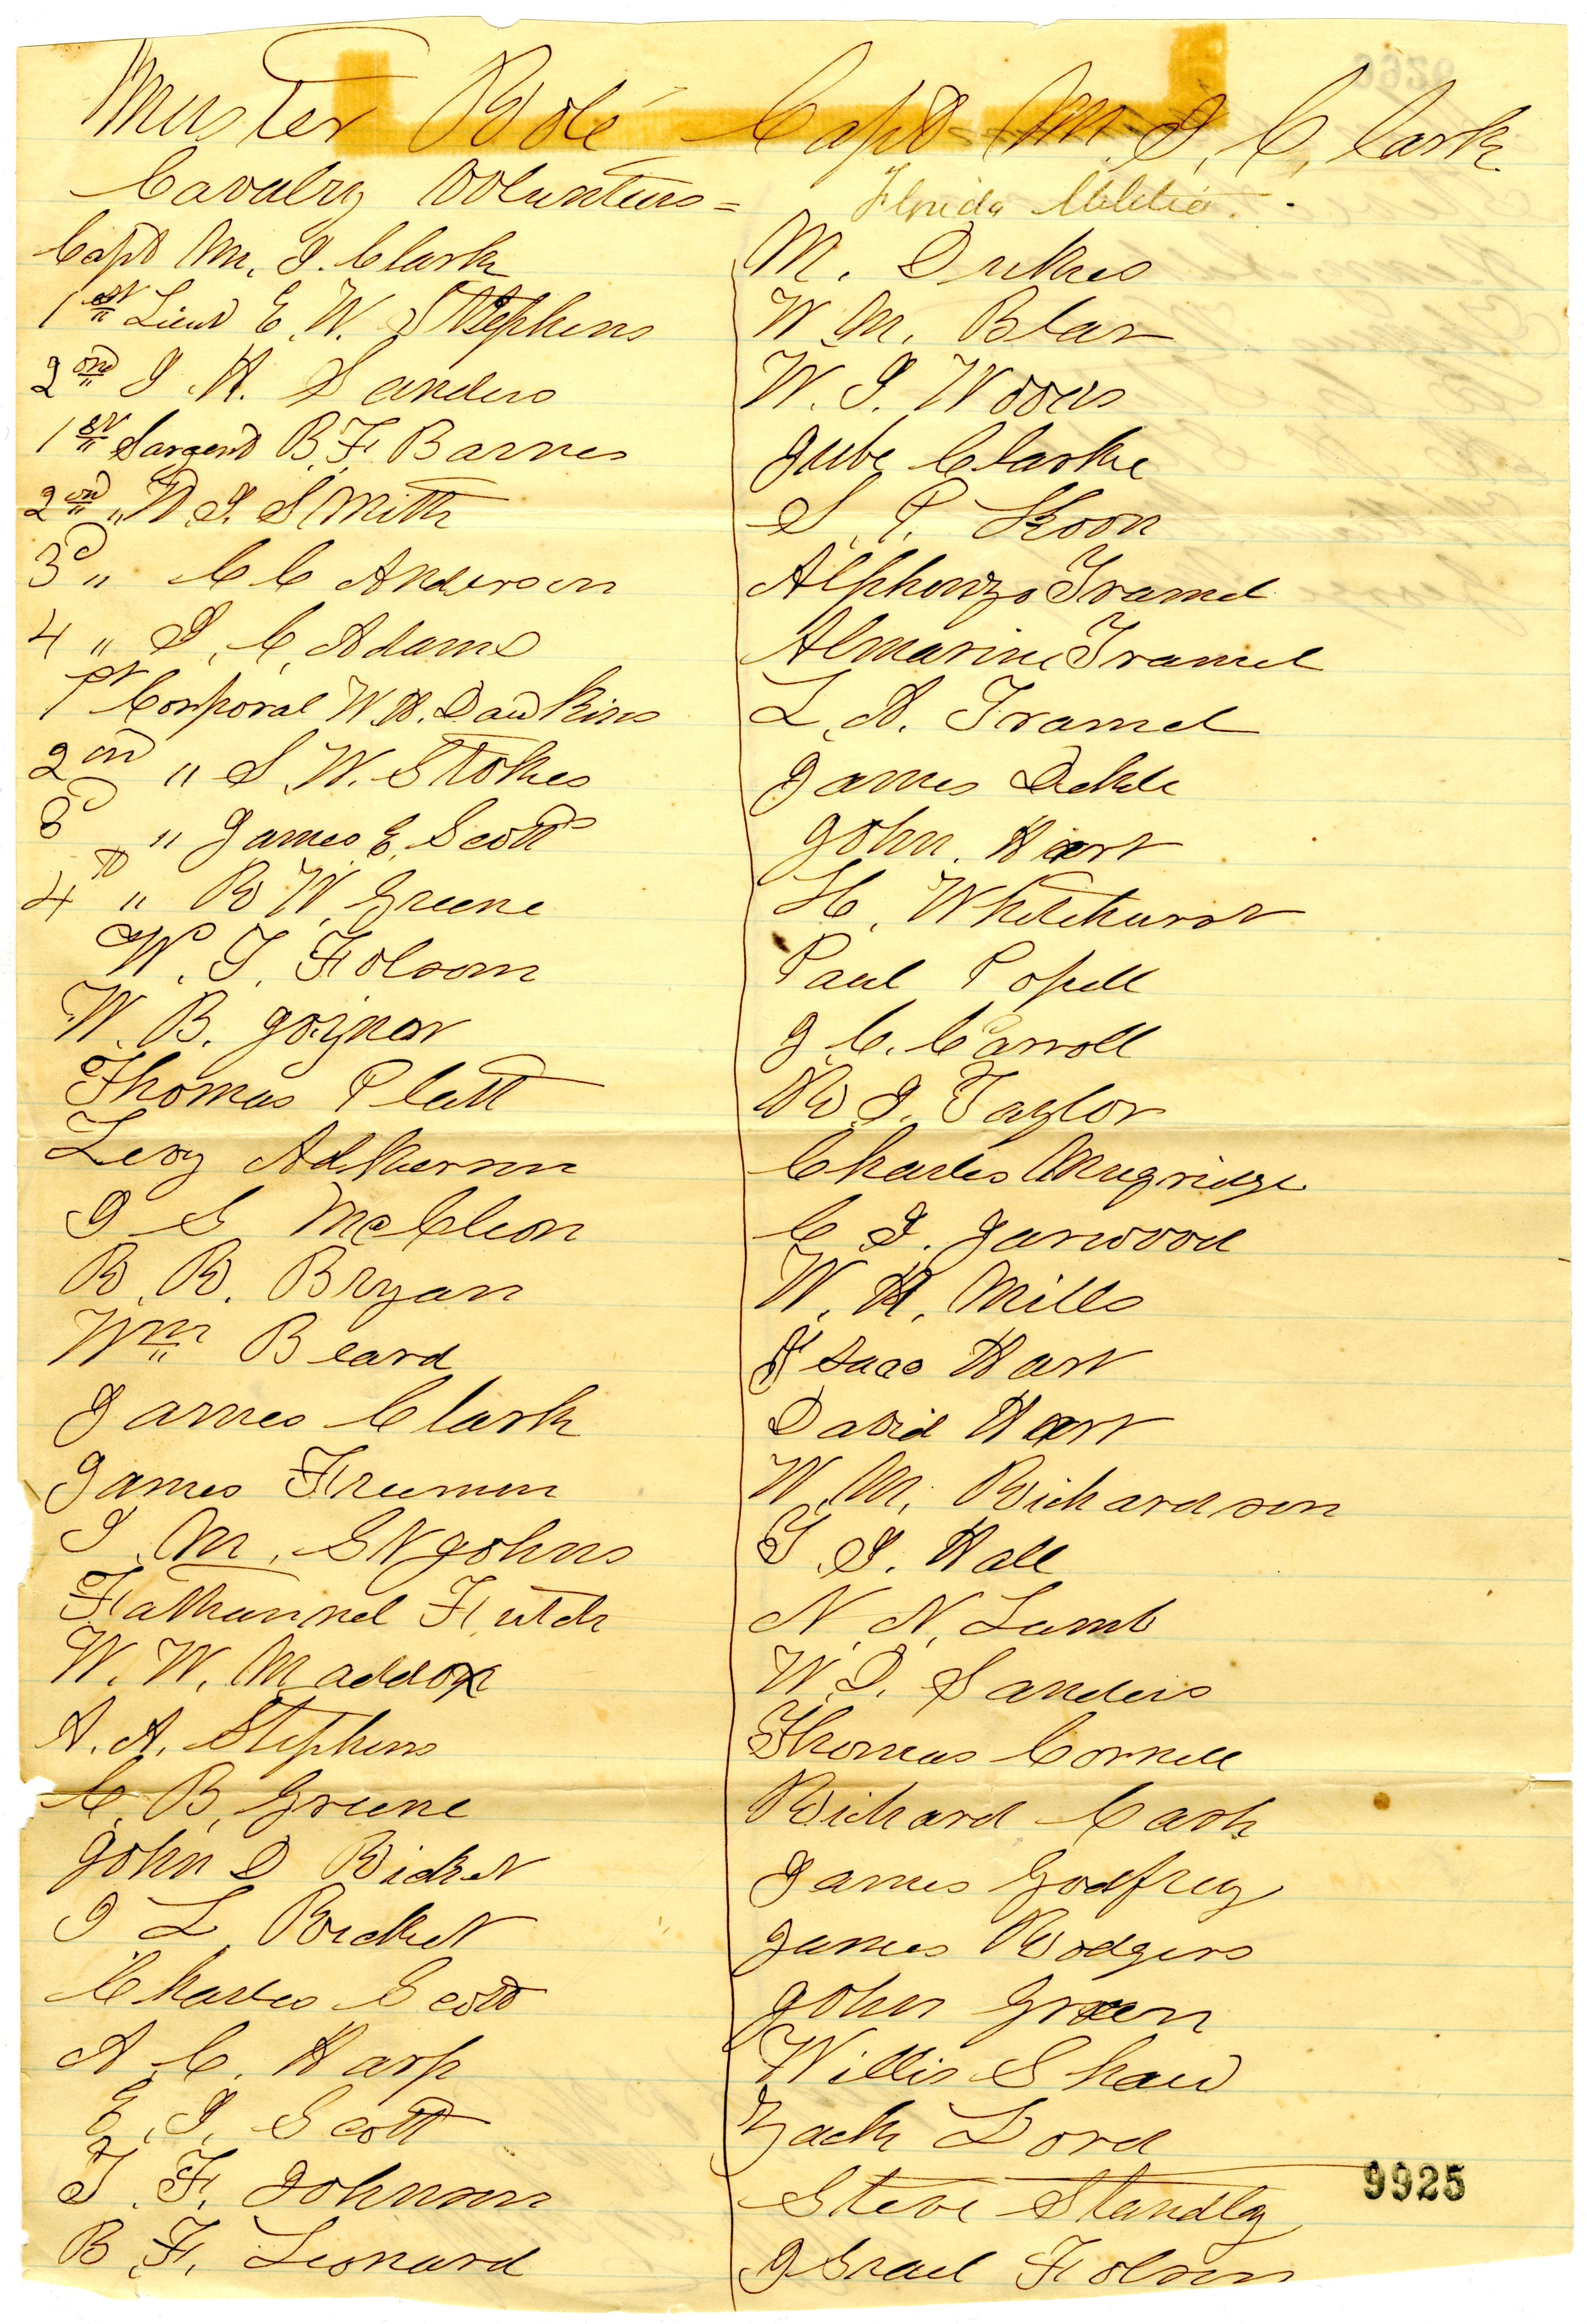 Muster Role Capt M. J. Clark
Cavalry Volunteers = Florida Militia.
Capt M. J. Clark
1st Lieut E. W. Stephens
2ond J. H. Sanders
1st Sargent B. F. Barnes
2ond " D. J. Smith
3d " C C Anderson
4 " J. C. Adams
1st Corporal W. H. Dawkins
2ond " S. W. Stokes
3d " James E. Scott
4th " R. W. Greene
W. T. Folsom
W. B. Joyner
Thomas Platt
Levy Adkerson
J S McCleon
B. R. Bryan
Wm Beard
James Clark
James Freeman
J. M. St Johns
Fathannel Futch
W. W. Maddox
A. A. Stephens
C. B. Greene
John D Ricket
J L Ricket
Charles Scott
A C. Harp
E. J. Scott
T. F. Johnson
B. F. Leonard
M. Dukes
W. M. Blar
W. J. Woods
Jube Clarke
S. P. Koon
Alphonzo Tramel
Almarine Tramel
L. A. Tramel
James Dekle
John. Hart
H. Whitehurst
Paul Popell
J. C. Carroll
R J. Taylor
Charles Mugridge
C J. Garwood
W. H. Mills
Isaac Hart
David Hart
W. M. Richardson
T. J. Hall
N. N. Lamb
W. D. Sanders
Thomas Cornell
Richard Cash
James Godfrey
James Rodgers
John Green
Willis Shaw
Zach Lord
Steve Standley
9925
Israel Folsom